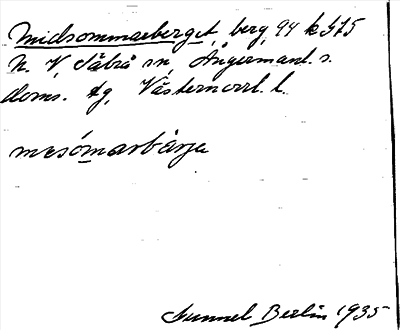 Midsommarberget, berg, 94 k 375
n. V, Säbrå sn, Ångermanl. s.
doms. tg, Västernorrl. l.
mesómarbárje
Gunnel Berlin 1935